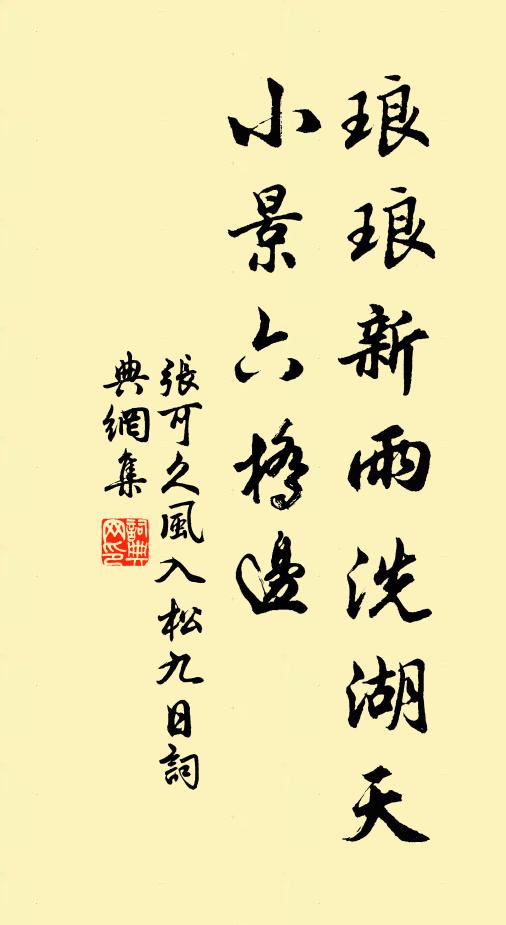 琅琅新雨洗湖天
小景六橋邊
張可久風入松九日詞
典網集
詞典网印